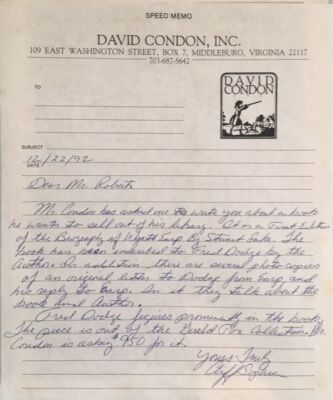 SPEED MEMO
DAVID CONDON, INC.
109 EAST WASHINGTON STREET, BOX 7, MIDDLEBURG, VIRGINIA 22117
703-687-5642
TO
DAVID
CONDON
SUBJECT
12/22/92
DATE
Dear Mr. Roberts
Mr. Condon has asked me to write you about a book
he wants to sell out of his library. It is a First Edition
of the Biography of Wyatt Earp By Stuart Lake. The
book has been inscribed to Fred Dodge by the
Author. In addition, there are several photo copies
of an original letter to Dodge from Earp and
his reply to Earp. In it they talk about the
book and Author.
Fred Dodge figures prominently in the book.
The piece is out of the Collection. Mr.
Condon is asking $950 for it.
Yours Truly